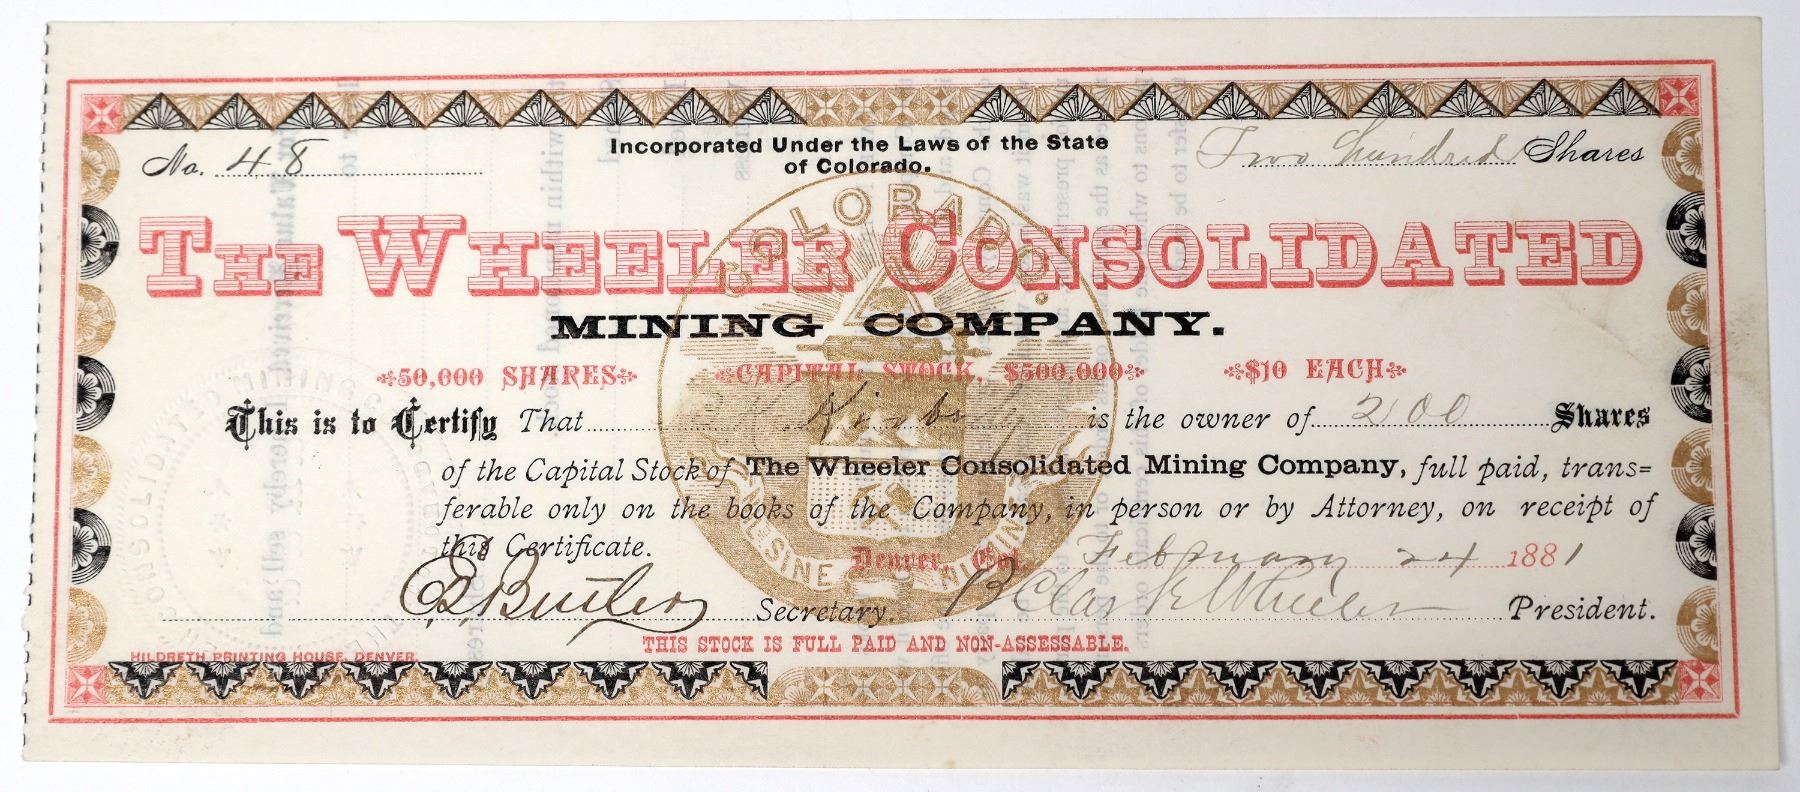 Incorporated Under the Laws of the State
of Colorado.
No. 48
Two Hundred Shares
COLORADO.
THE WHEELER CONSOLIDATED
MINING COMPANY.
50,000 SHARES CAPITAL STOCK, $500,000 $10 EACH
This is to Certify That Kirby is the owner of 200 Shares
of the Capital Stock of The Wheeler Consolidated Mining Company, full paid, trans=
ferable only on the books of the Company, in person or by Attorney, on receipt of
this Certificate.
NIL SINE NUMINE
Denver, Col. February 24 1881
Butler Secretary. B Clark Wheeler President.
THIS STOCK IS FULL PAID AND NON-ASSESSABLE.
HILDRETH PRINTING HOUSE, DENVER.
CONSOLIDATED MINING